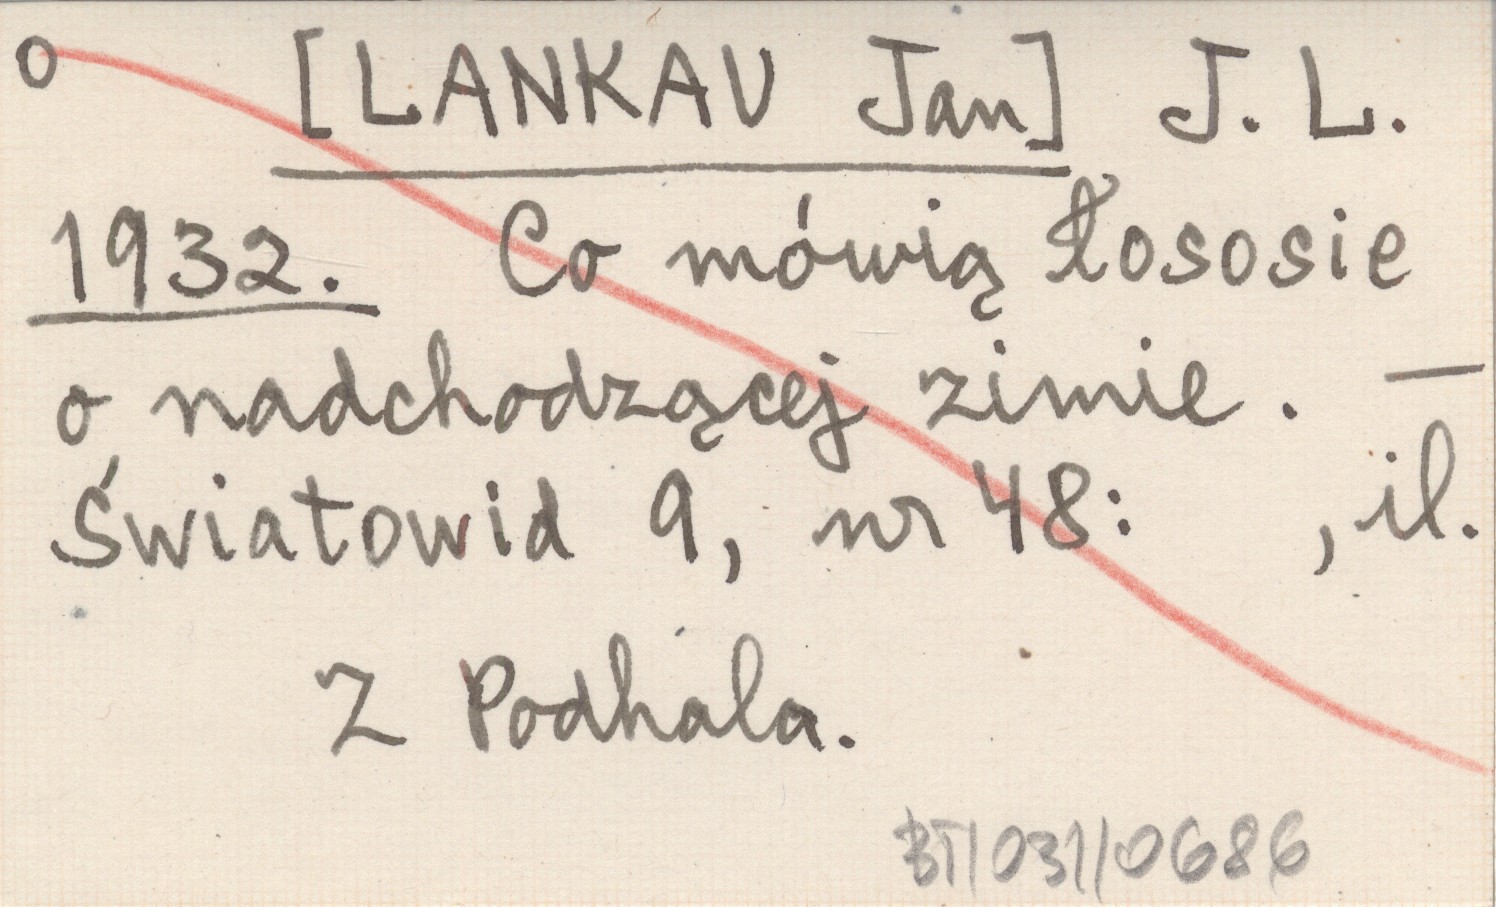 o [LANKAU Jan] J. L.
1932. Co mówią łososie
o nadchodzącej zimie. —
Światowid 9, nr 48: , il.
Z Podhala.
BT/031/0686